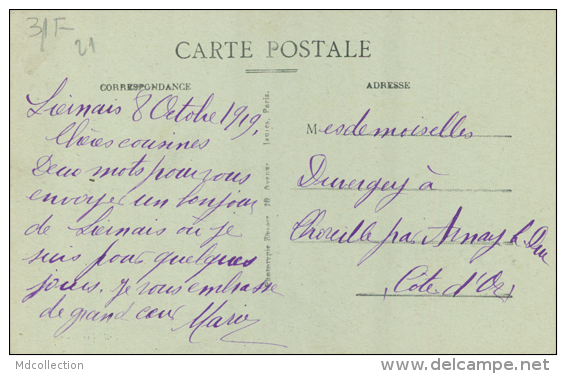 31F
21
CARTE POSTALE
CORRESPONDANCE
ADRESSE
Liernais 8 Octobre 1919,
Chères cousines
Deux mots pour vous
envoyer un bonjour
de Liernais où je
suis pour quelques
jours. Je vous embrasse
de grand coeur Marie
Mesdemoiselles
Duvergey à
par Arnay le Duc
(Cote d'Or)
Paris.
Mdcollection
www.delcampe.net